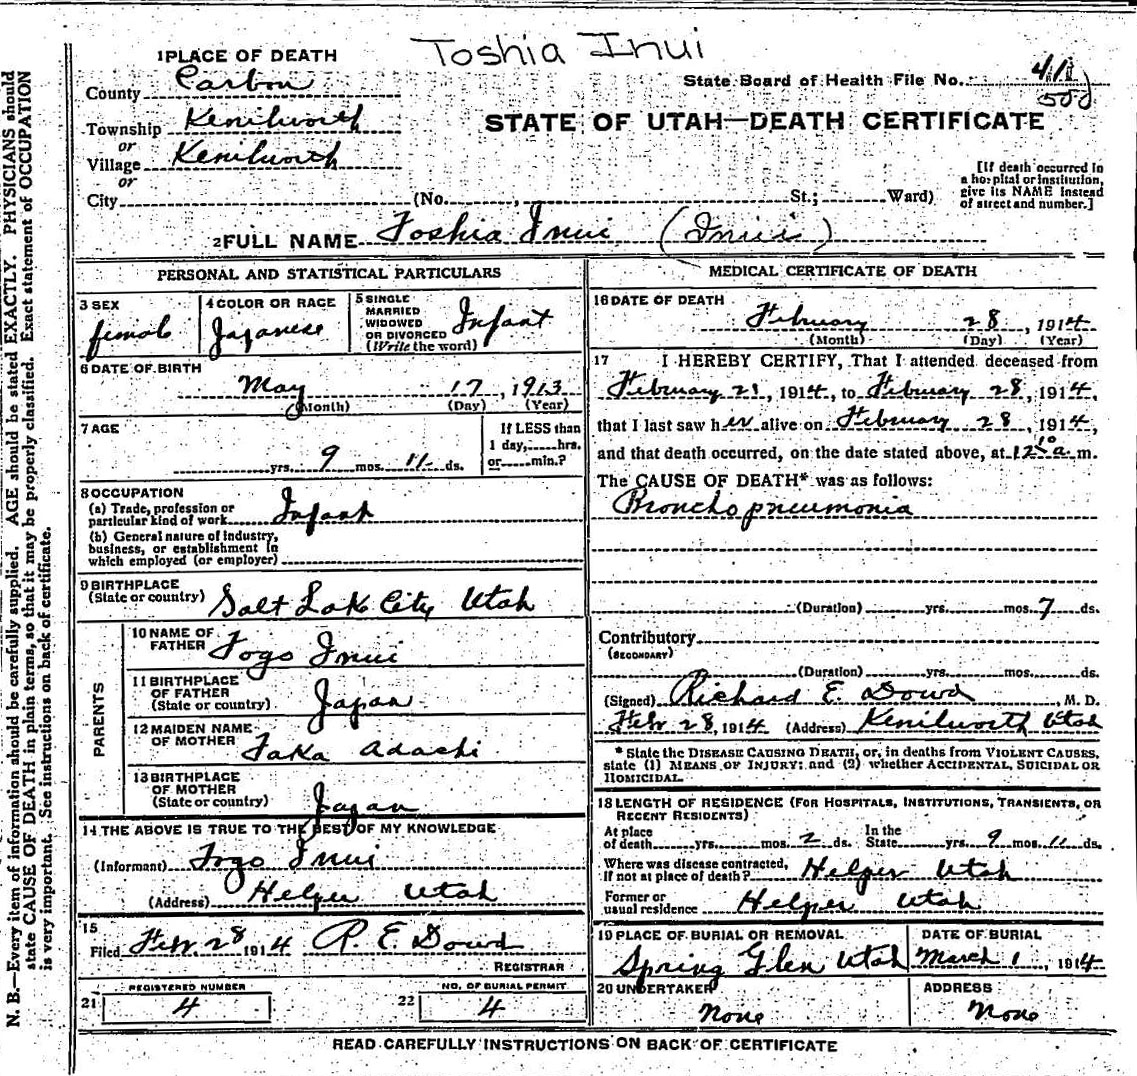 Toshia Inui
1 PLACE OF DEATH
State Board of Health File No. 41
550
County Carbon
Township Kenilworth
or
Village Kenilworth
or
City (No. , St.; Ward)
STATE OF UTAH—DEATH CERTIFICATE
[If death occurred in
a hospital or institution,
give its NAME instead
of street and number.]
2 FULL NAME Toshia Inui (Inui)
PERSONAL AND STATISTICAL PARTICULARS
3 SEX
female
4 COLOR OR RACE
Japanese
5 SINGLE
MARRIED
WIDOWED
OR DIVORCED
(Write the word)
Infant
6 DATE OF BIRTH
May 17, 1913
(Month) (Day) (Year)
7 AGE
yrs. 9 mos. 11 ds.
If LESS than
1 day, hrs.
or min.?
8 OCCUPATION
(a) Trade, profession or
particular kind of work Infant
(b) General nature of industry,
business, or establishment in
which employed (or employer)
9 BIRTHPLACE
(State or country) Salt Lak City Utah
PARENTS
10 NAME OF
FATHER Togo Inui
11 BIRTHPLACE
OF FATHER
(State or country) Japan
12 MAIDEN NAME
OF MOTHER Taka Adachi
13 BIRTHPLACE
OF MOTHER
(State or country) Japan
14 THE ABOVE IS TRUE TO THE BEST OF MY KNOWLEDGE
(Informant) Togo Inui
(Address) Helper Utah
15
Filed Febr. 28 1914 R. E. Dowd
REGISTRAR
21 REGISTERED NUMBER
4
22 NO. OF BURIAL PERMIT
4
MEDICAL CERTIFICATE OF DEATH
16 DATE OF DEATH
February 28, 1914
(Month) (Day) (Year)
17 I HEREBY CERTIFY, That I attended deceased from
February 21, 1914, to February 28, 1914,
that I last saw her alive on February 28, 1914,
and that death occurred, on the date stated above, at 12 10 a m.
The CAUSE OF DEATH* was as follows:
Bronchopneumonia
(Duration) yrs. mos. 7 ds.
Contributory
(SECONDARY)
(Duration) yrs. mos. ds.
(Signed) Richard E. Dowd M. D.
Febr 28, 1914 (Address) Kenilworth Utah
* State the DISEASE CAUSING DEATH, or, in deaths from VIOLENT CAUSES,
state (1) MEANS OF INJURY; and (2) whether ACCIDENTAL, SUICIDAL OR
HOMICIDAL.
18 LENGTH OF RESIDENCE (FOR HOSPITALS, INSTITUTIONS, TRANSIENTS, OR
RECENT RESIDENTS)
At place In the
of death yrs. mos. 2 ds. State yrs. 9 mos. 11 ds.
Where was disease contracted,
if not at place of death? Helper Utah
Former or
usual residence Helper Utah
19 PLACE OF BURIAL OR REMOVAL
Spring Glen Utah
DATE OF BURIAL
March 1, 1914
20 UNDERTAKER
None
ADDRESS
None
READ CAREFULLY INSTRUCTIONS ON BACK OF CERTIFICATE
N. B.—Every item of information should be carefully supplied. AGE should be stated EXACTLY. PHYSICIANS should
state CAUSE OF DEATH in plain terms, so that it may be properly classified. Exact statement of OCCUPATION
is very important. See instructions on back of certificate.